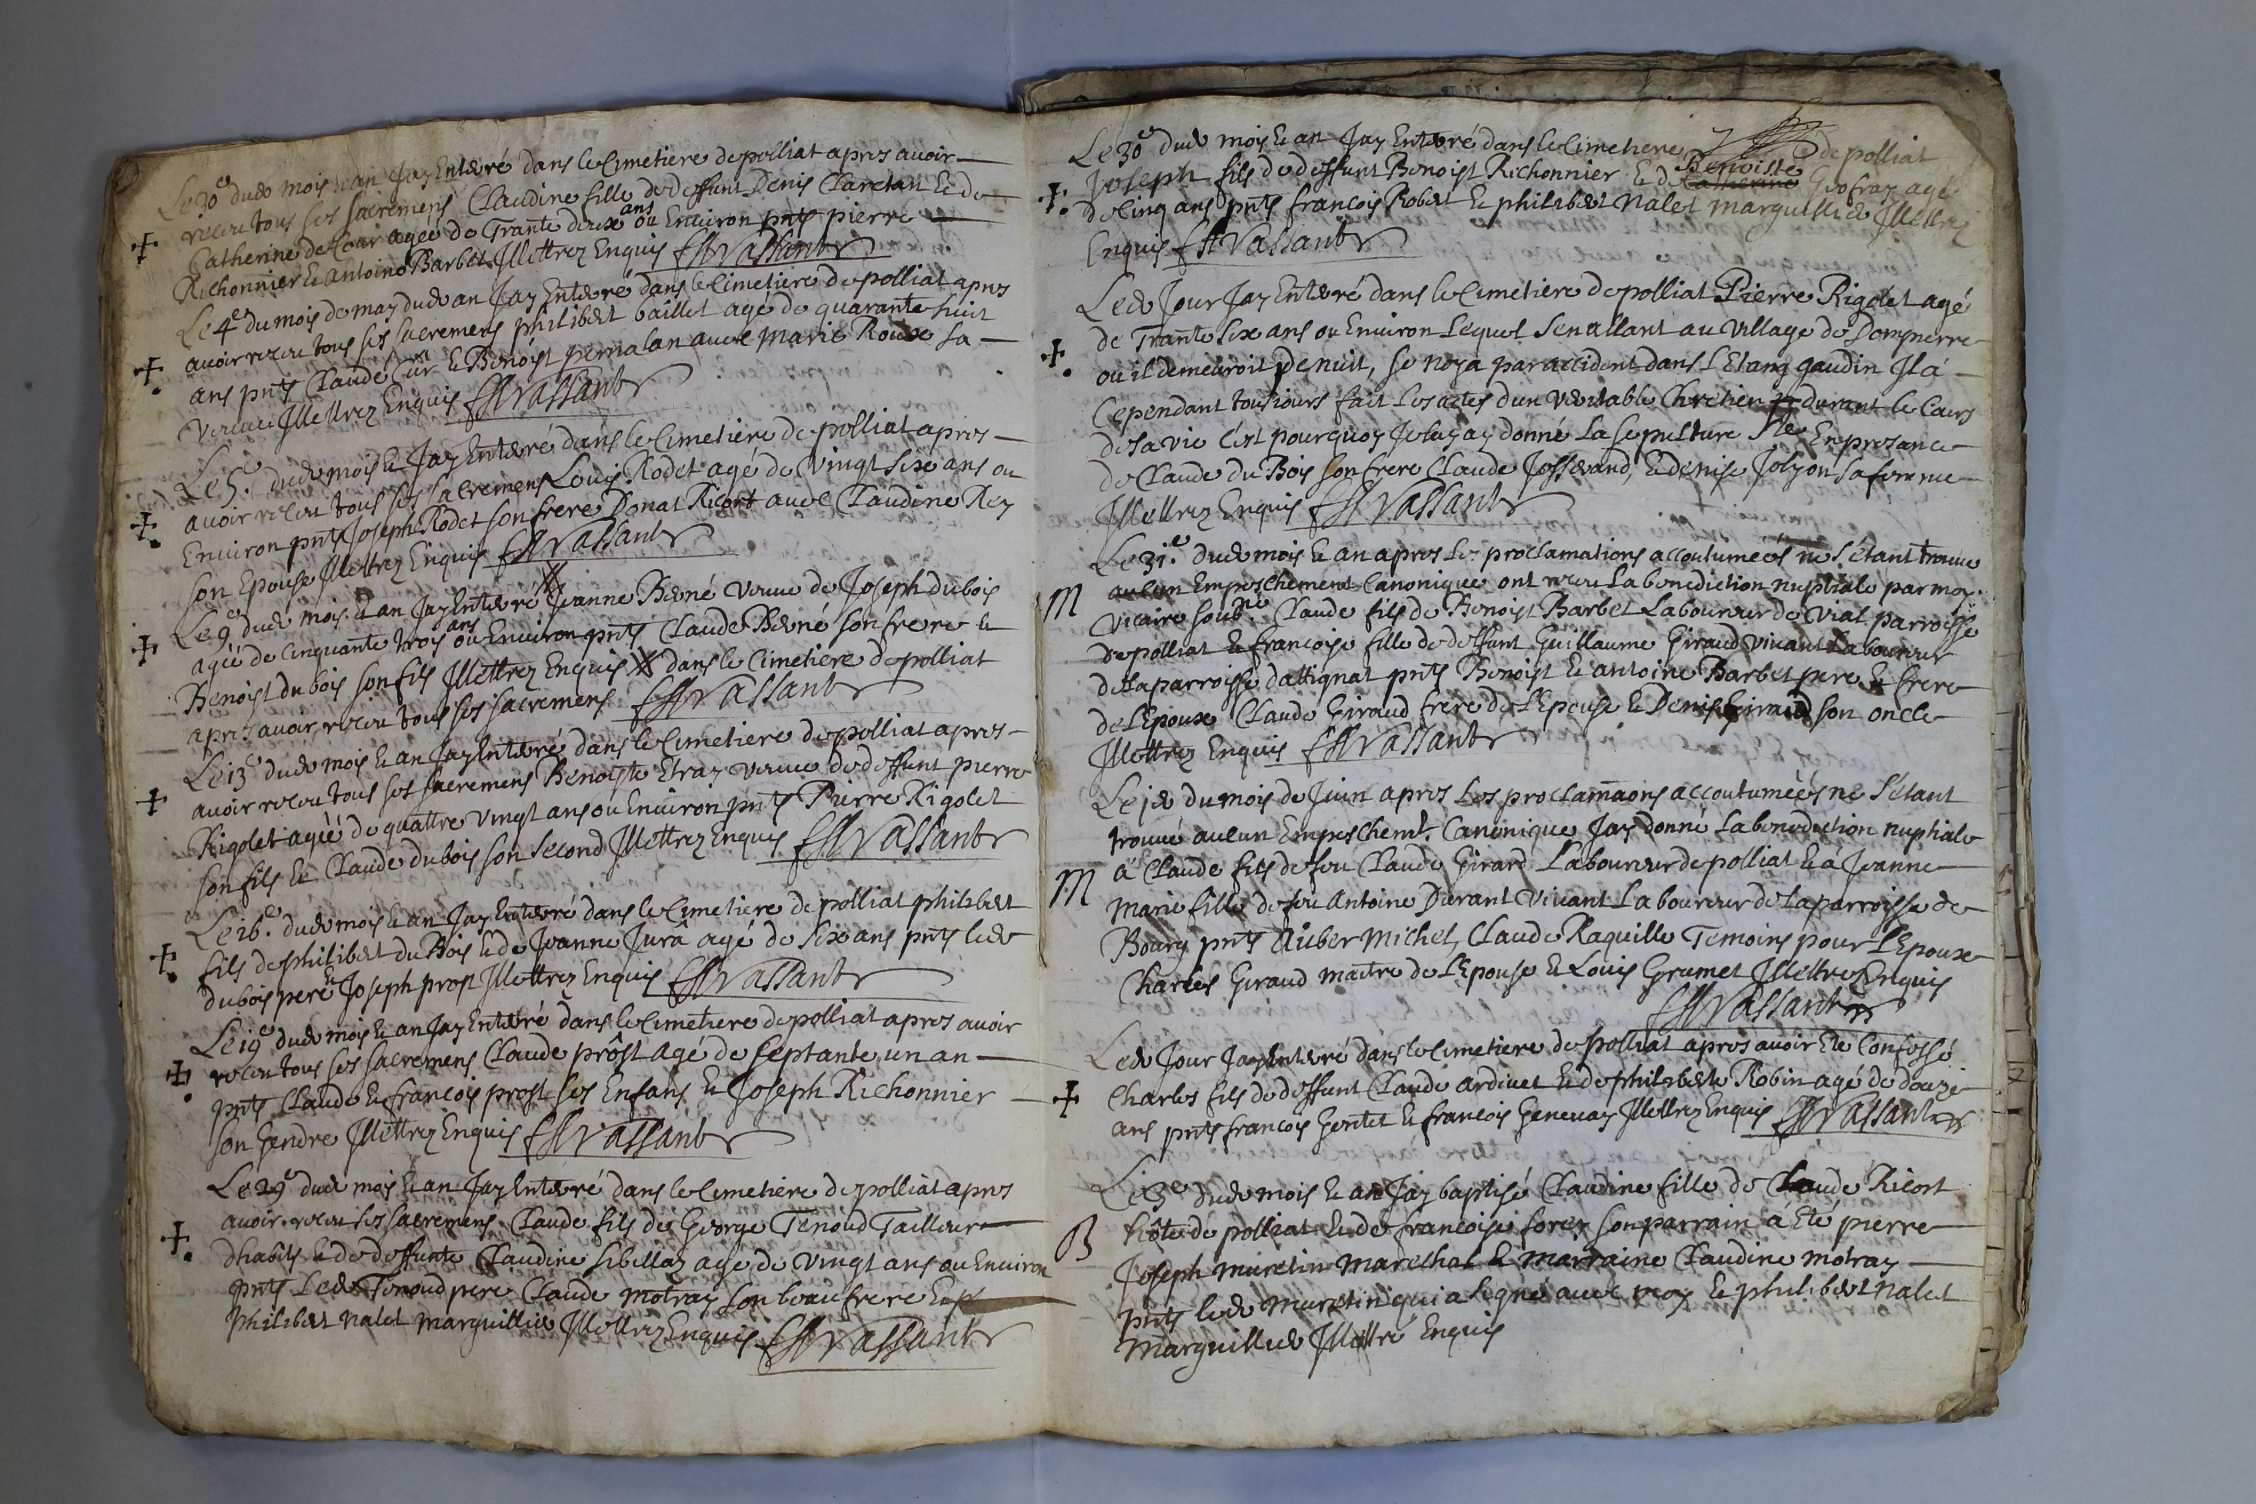 Le 30e dud mois et an Jay Enterré dans le Cimetiere de polliat apres avoir
receu tous ses sacremens Claudine fille de deffunt Denis Claretan et de
Catherine de agee de Trante deux ans ou Environ pnts pierre
Richonnier et antoine Barbet Illettrez Enquis Vassant
Le 4e du mois de may dud an Jay Enterré dans le Cimetiere de polliat apres
avoir receu tous ses sacremens philibert baillet agé de quarante huit
ans pnts Claude Cür et Benoist pernalan avec Marie Roux sa
Veuve Illettrez Enquis Vassant
Le 5e dud mois et Jay Enterré dans le Cimetiere de polliat apres
avoir receu tous ses sacremens Louis Rodet agé de Vingt six ans ou
Environ pnts Joseph Rodet son frere Donat Ricort avec Claudine Rey
son Epouse Illettrez Enquis Vassant
Le 9e dud mois et an Jay Enterré Jeanne Berné Veuve de Joseph dubois
agée de Cinquante trois ans ou Environ pnts Claude Berné son frere et
Benoist dubois son fils Illettrez Enquis dans le Cimetiere de polliat
apres avoir receu tous ses sacremens Vassant
Le 13e dud mois et an Jay Enterré dans le Cimetiere de polliat apres
avoir receu tous ses sacremens Benoiste Etray Veuve de deffunt pierre
Rigolet agéé de quattre vingt ans ou Environ pnts Pierre Rigolet
son fils et Claude dubois son second Illettrez Enquis Vassant
Le 16e dud mois et an Jay Enterré dans le Cimetiere de polliat philibert
fils de philibert du Bois et de Jeanne Jurâ agé de six ans pnts led
dubois pere et Joseph prost Illettrez Enquis Vassant
Le 19e dud mois et an Jay Enterré dans le Cimetiere de polliat apres avoir
receu tous ses sacremens Claude prôst agé de septante un an
pnts Claude et francois prost ses Enfans et Joseph Richonnier
son Gendre Illettrez Enquis Vassant
Le 29e dud mois et an Jay Enterré dans le Cimetiere de polliat apres
avoir receu ses sacremens Claude fils de George Tenoud Tailleur
dhabits et de deffunte Claudine sibellas agé de Vingt ans ou Environ
pnts Led Tenoud pere Claude motray son beau frere Et
philibert nalet marguillier Illettrez Enquis Vassant
Le 30e dud mois et an Jay Enterré dans le Cimetiere de polliat
Joseph fils de deffunt Benoist Richonnier et de Benoiste Geofray agé
de Cinq ans pnts francois Robert et philibert nalet marguillier Illettrez
Enquis Vassant
Led Jour Jay Enterré dans le Cimetiere de polliat Pierre Rigolet agé
de Trante six ans ou Environ Lequel s'en allant au Village de Dompierre
ou il demeuroit De nuit, se noya par accident dans L'Etang gaudin Il á
Cependant tousiours fait Les actes d'un Veritable Chretien durant le Cours
de sa vie C'est pourquoy Je luy ay donné La sepulture En presance
de Claude du Bois son frere Claude Josserand, et denise Jolyon sa femme
Illettrez Enquis Vassant
Le 31e dud mois et an apres Les proclamations accoutuméés ne s'étant trouvé
M aucun Empeschement Canonique ont receu La benediction nuptiale par moy
Vicaire soubné Claude fils de Benoist Barbet Laboureur de Vial parroisse
de polliat et francoise fille de deffunt Guillaume Giraud Vivant Laboureur
de la parroisse dattignat pnts Benoist et antoine Barbet pere et frere
de L'Epoux Claude Giraud frere de L'Epouse et Denis Giraud son oncle
Illettrez Enquis Vassant
Le 1er du mois de Juin apres Les proclamaons accoutuméés ne s'étant
trouvé aucun Empeschemt Canonique Jay donné La benediction nuptiale
M á Claude fils de feu Claude Girard Laboureur de polliat et á Jeanne
Marie fille de feu Antoine Durant Vivant Laboureur de la parroisse de
Bourg pnts Auber Michel, Claude Raquille Temoins pour L'Epoux
Charles Giraud maitre de L'Epouse et Louis Grumet Illettrez Enquis
Vassant
Led Jour Jay Enterré dans le Cimetiere de polliat apres avoir Eté Confessé
Charles fils de deffunt Claude ardivet et de philiberte Robin agé de douze
ans pnts francois Gontet et francois Genevay Illettrez Enquis Vassant
Le 3e dud mois et an Jay baptisé Claudine fille de Claude Ricort
B hôte de polliat et de francoise sorex son parrain á Eté pierre
Joseph muretin Marechal et Marraine Claudine motray
pnts led muretin qui a signé avec moy et philibert nalet
marguillier Illettré Enquis